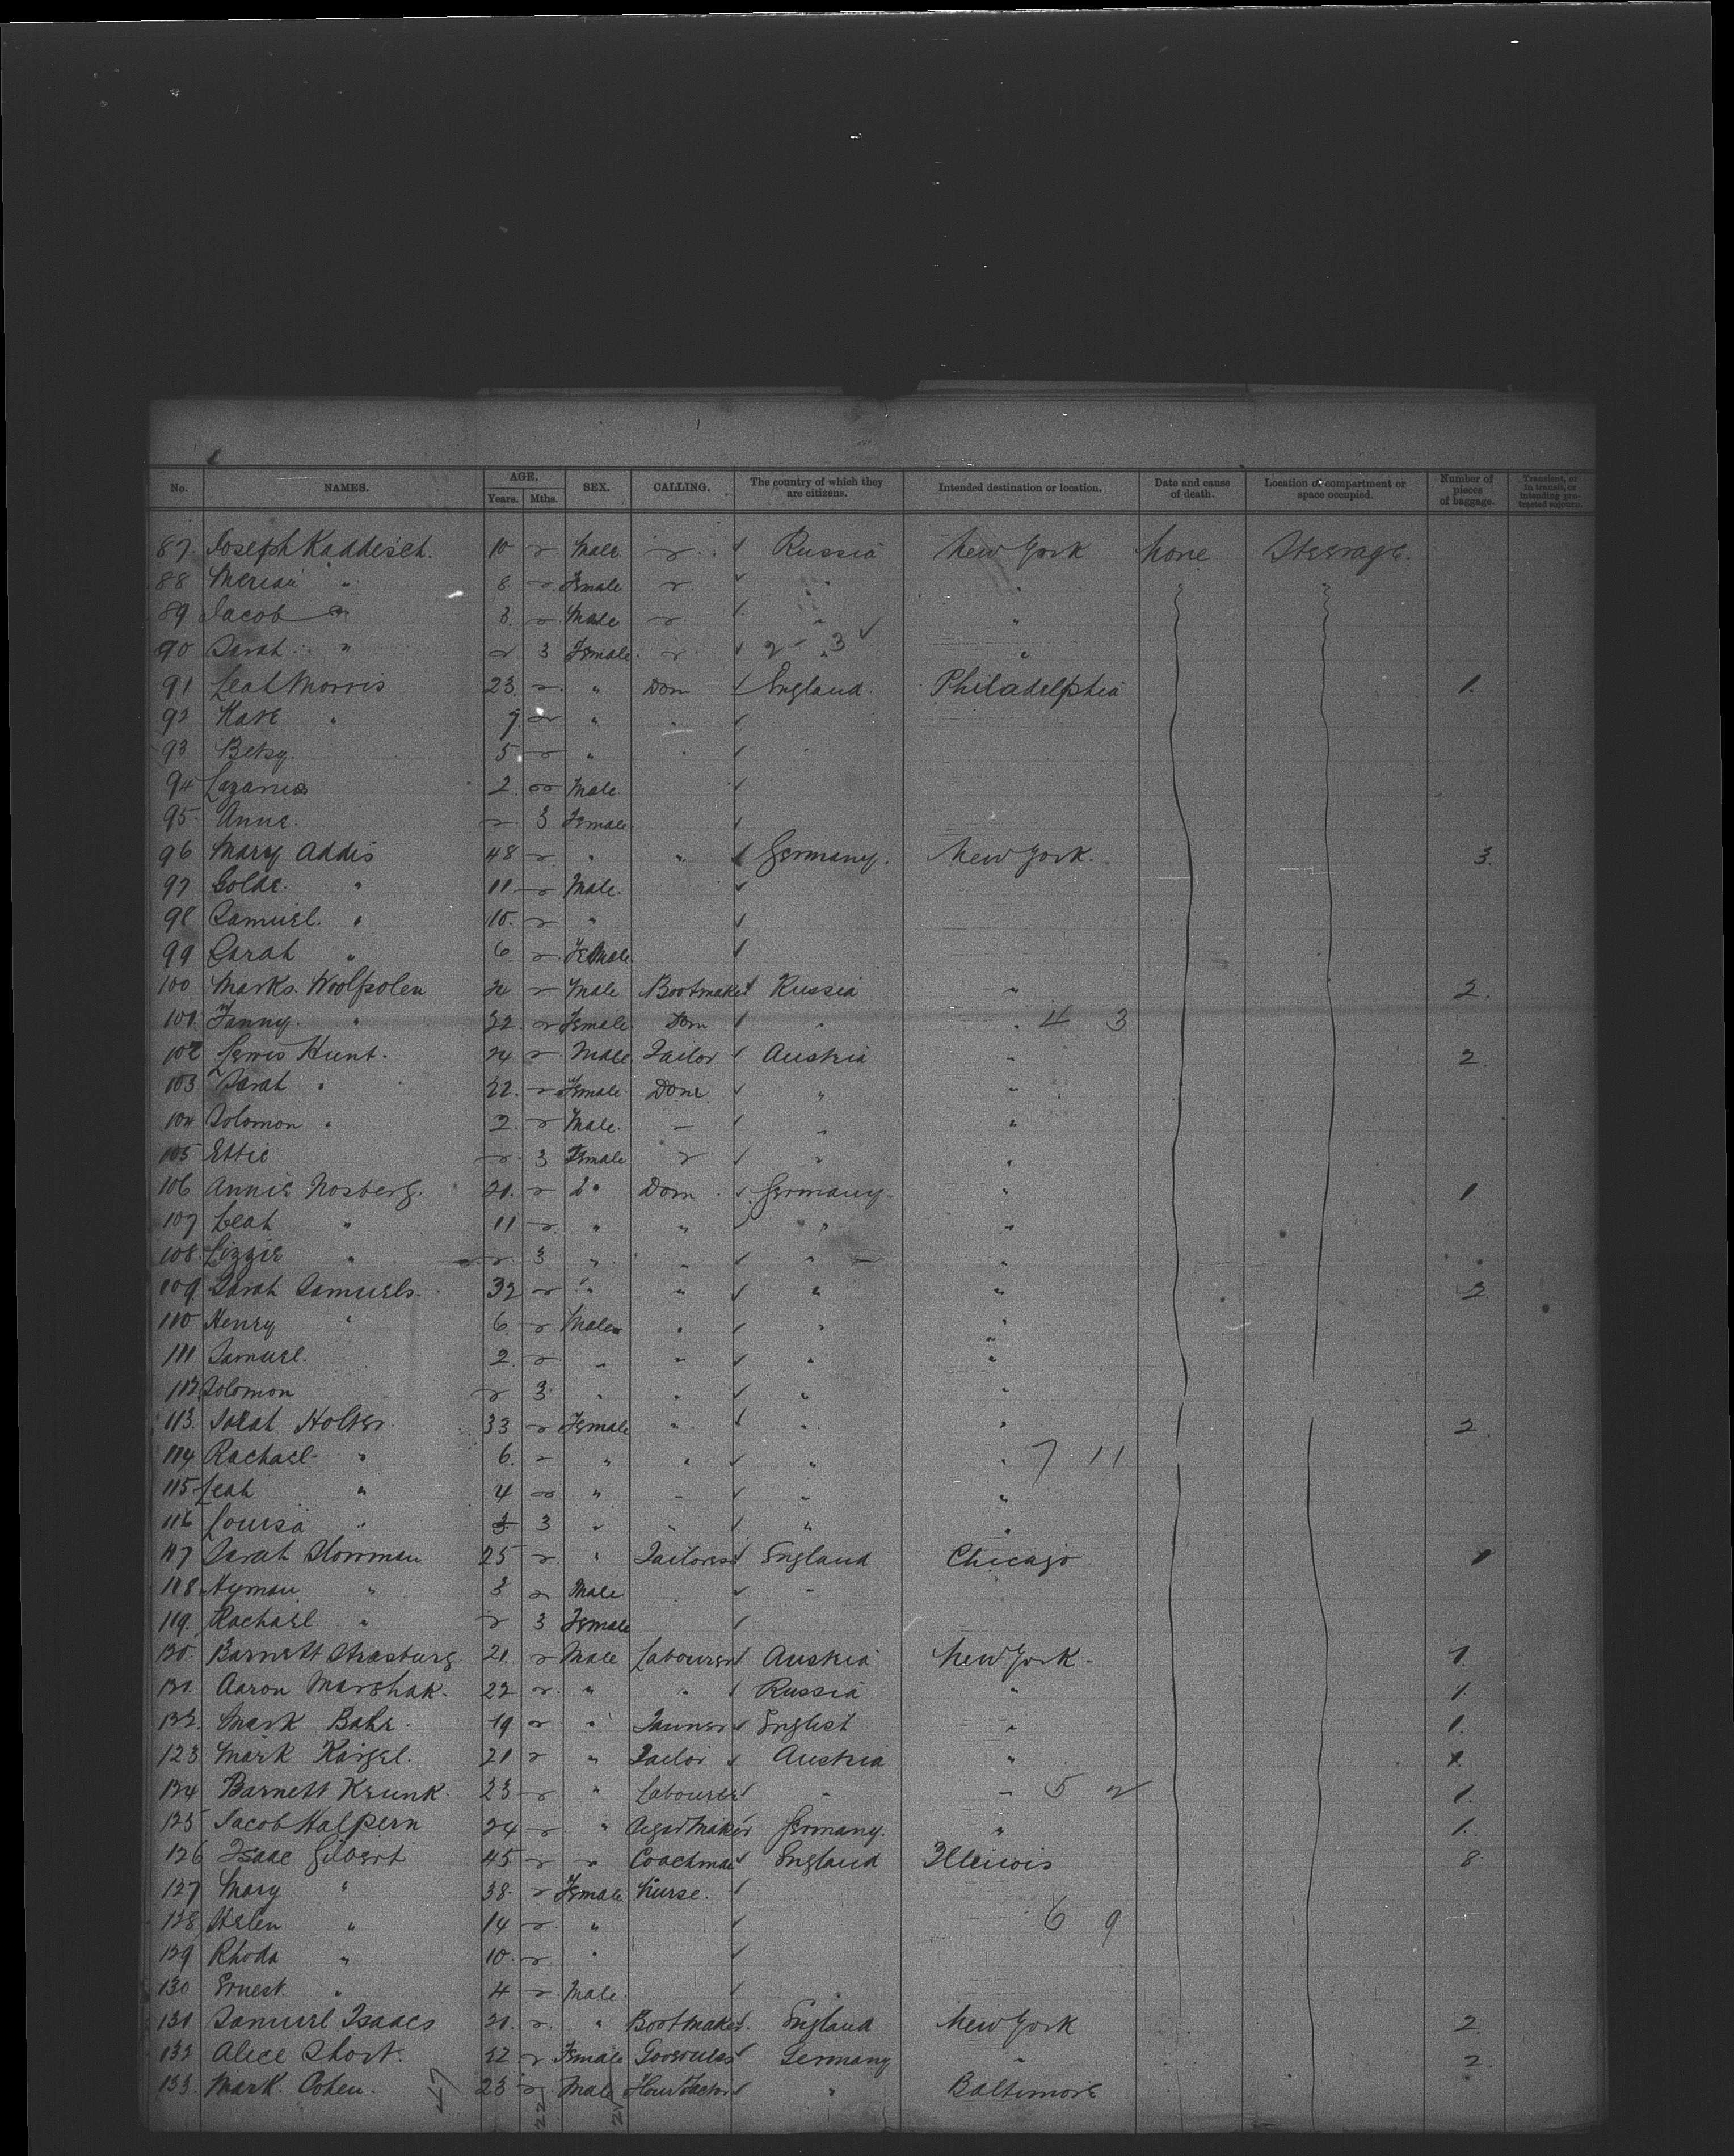 No. NAMES. AGE. Years. Mths. SEX. CALLING. The country of which they are citizens. Intended destination or location. Date and cause of death. Location of compartment or space occupied. Number of pieces of baggage. Transient, or in transit, or intending protracted sojourn.
87. Joseph Kaddisch. 10 Male Russia New York None Steerage.
88 Meriam " 8 Female " "
89 Jacob " 3. Male " "
90 Sarah " 3 Female 2 - 3 " "
91 Leah Morris 23. " Dom England. Philadelphia 1.
92 Kate " 7 " "
93 Betsy. 5 " "
94 Lazarus 2. Male
95 Anne. 3 Female.
96 Mary Addis 48 " " Germany. New York. 3.
97 Golde. " 11 Male.
98 Samuel. " 10. "
99 Sarah " 6 Female.
100 Marks Woolfsolen 24 Male Bootmaker Russia " 2.
101. Fanny. " 22. Female. Dom " " 4 3
102 Lewis Hunt. 24 Male Tailor Austria " 2
103 Sarah " 22. Female. Dom. " "
104 Solomon " 2. Male. - " "
105 Ettie 3 Female " "
106 Annie Nosberg. 21. Do Dom Germany " 1
107 Leah " 11 " " " "
108. Lizzie " 3 " " " "
109. Sarah Samuels. 32 " " " " 2.
110 Henry " 6. Male " " "
111 Samuel. 2. " " " "
112 Solomon 3 " " " "
113. Sarah Holzer. 33 Female " " " 2.
114 Rachael " 6. " " " " 7 11
115 Leah " 4 " " " "
116 Louisa " 3 " " " "
117 Sarah Slowman 25 " Tailoress England Chicago 1
118 Hyman " 3 Male "
119. Rachael " 3 Female
120. Barnett Strasburg 21. Male Labourer Austria New York. 1.
121. Aaron Marshak. 22 " " Russia " 1.
122. Mark Bahr. 19 " Tanner English " 1.
123 Mark Kaigel. 21 " Tailor Austria " 1.
124 Barnett Krunk. 23 " Labourer " " 5 2 1.
125 Jacob Halpern 24 " Cigar Maker Germany. " 1.
126 Isaac Gilbert 45 " Coachman England Illinois 8
127 Mary " 38. Female Nurse.
128 Helen " 14 " 6 9
129 Rhoda " 10. "
130 Ernest. " 4 Male
131 Samuel Isaacs 21. " Bootmaker. England New York 2
132 Alice Short. 22 Female Governess Germany " 2.
133. Mark. Cohen. 23 Male " Baltimore